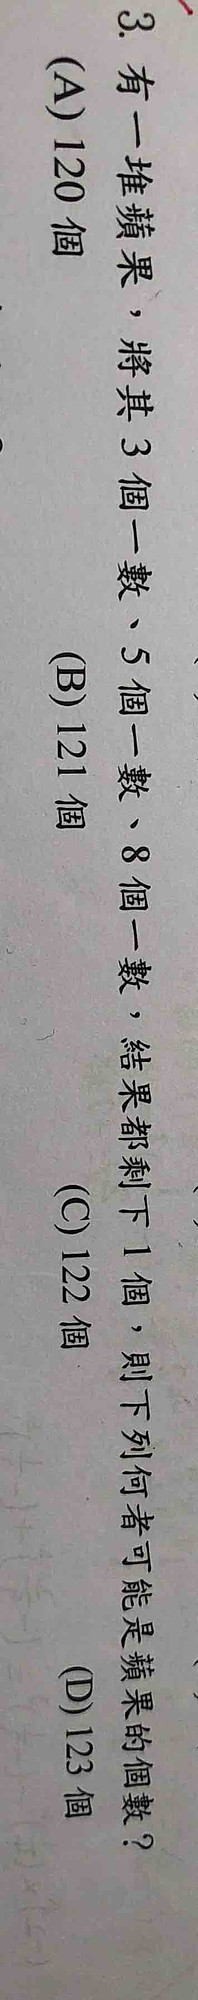 3. 有一堆蘋果，將其 3 個一數、5 個一數、8 個一數，結果都剩下 1 個，則下列何者可能是蘋果的個數？
(A) 120 個 (B) 121 個 (C) 122 個 (D) 123 個